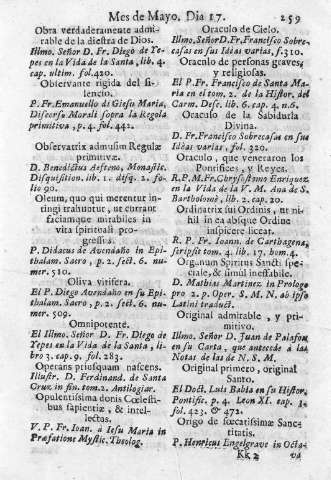 Mes de Mayo. Dia 17. 259
Obra verdaderamente admi-
rable de la diestra de Dios.
Illmo. Señor D. Fr. Diego de Te-
pes en la Vida de la Santa, lib. 4.
cap. ultim. fol. 420.
Observante rigida del si-
lencio.
P. Fr. Emanuello di Giesu Maria,
Discorsu Morali sopra la Regola
primitiva, p. 4. fol. 442.
Observatrix admisum Regulæ
primitivæ.
D. Benedictus Aefteno, Monastic.
Disquisition. lib. 1. disq. 2. fo-
lio 90.
Oleum, quo qui merentur in-
tingi trahuntur, ut currant
faciamque mirabiles in
vita spirituali pro-
gressus.
P. Didacus de Avendaño in Epi-
thalam. Sacro, p. 2. sect. 6. nu-
mer. 510.
Oliva vitifera.
El P. Diego Avendaño en su Epi-
thalam. Sacro, p. 2. sect. 6. nu-
mer. 509.
Omnipotente.
El Illmo. Señor D. Fr. Diego de
Tepes en la Vida de la Santa, li-
bro 3. cap. 9. fol. 283.
Operans priusquam nascens.
Illustr. D. Ferdinand. de Santa
Cruz in fin. tom. 2. Antilogiæ.
Opulentissima donis Cœlesti-
bus sapientiæ, & intel-
lectus.
V. P. Fr. Ioan. à Iesu Maria in
Præfatione Mystic. Theolog.
Oraculo de Cielo.
Illmo. Señor D. Fr. Francisco Sobre-
casas en sus Idéas varias, f. 310.
Oraculo de personas graves,
y religiosas.
El P. Fr. Francisco de Santa Ma-
ria en el tom. 2. de la Histor. del
Carm. Desc. lib. 6. cap. 4. n. 6.
Oraculo de la Sabiduria
Divina.
D. Fr. Francisco Sobrecasas en sus
Idéas varias, fol. 320.
Oraculo, que veneraron los
Pontifices, y Reyes.
R. P. M. Fr. Chrysostomo Enriquez
en la Vida de la V. M. Ana de S.
Bartholomè, lib. 2. cap. 20.
Ordinatrix sui Ordinis, ut ni-
hil in ea absque Ordine
inspicere liceat.
R. P. Fr. Ioann. de Carthagena,
scripsit tom. 4. lib. 17. hom. 4.
Organum Spiritus Sancti spe-
ciale, & simul ineffabile.
D. Mathias Martinez in Prologo
pro 2. p. Oper. S. M. N. ab ipso
Latinè traduct.
Original admirable, y pri-
mitivo.
Illmo. Señor D. Juan de Palafox
en su Carta, que antecede à las
Notas de las de N. S. M.
Original primero, original
Santo.
El Doct. Luis Babia en su Histor.
Pontific. p. 4. Leon XI. cap. 1.
fol. 423. & 472.
Origo de fœcatissimæ Sancti-
tatis.
P. Henricus Engelgrave in Octa-
Kk 2 va